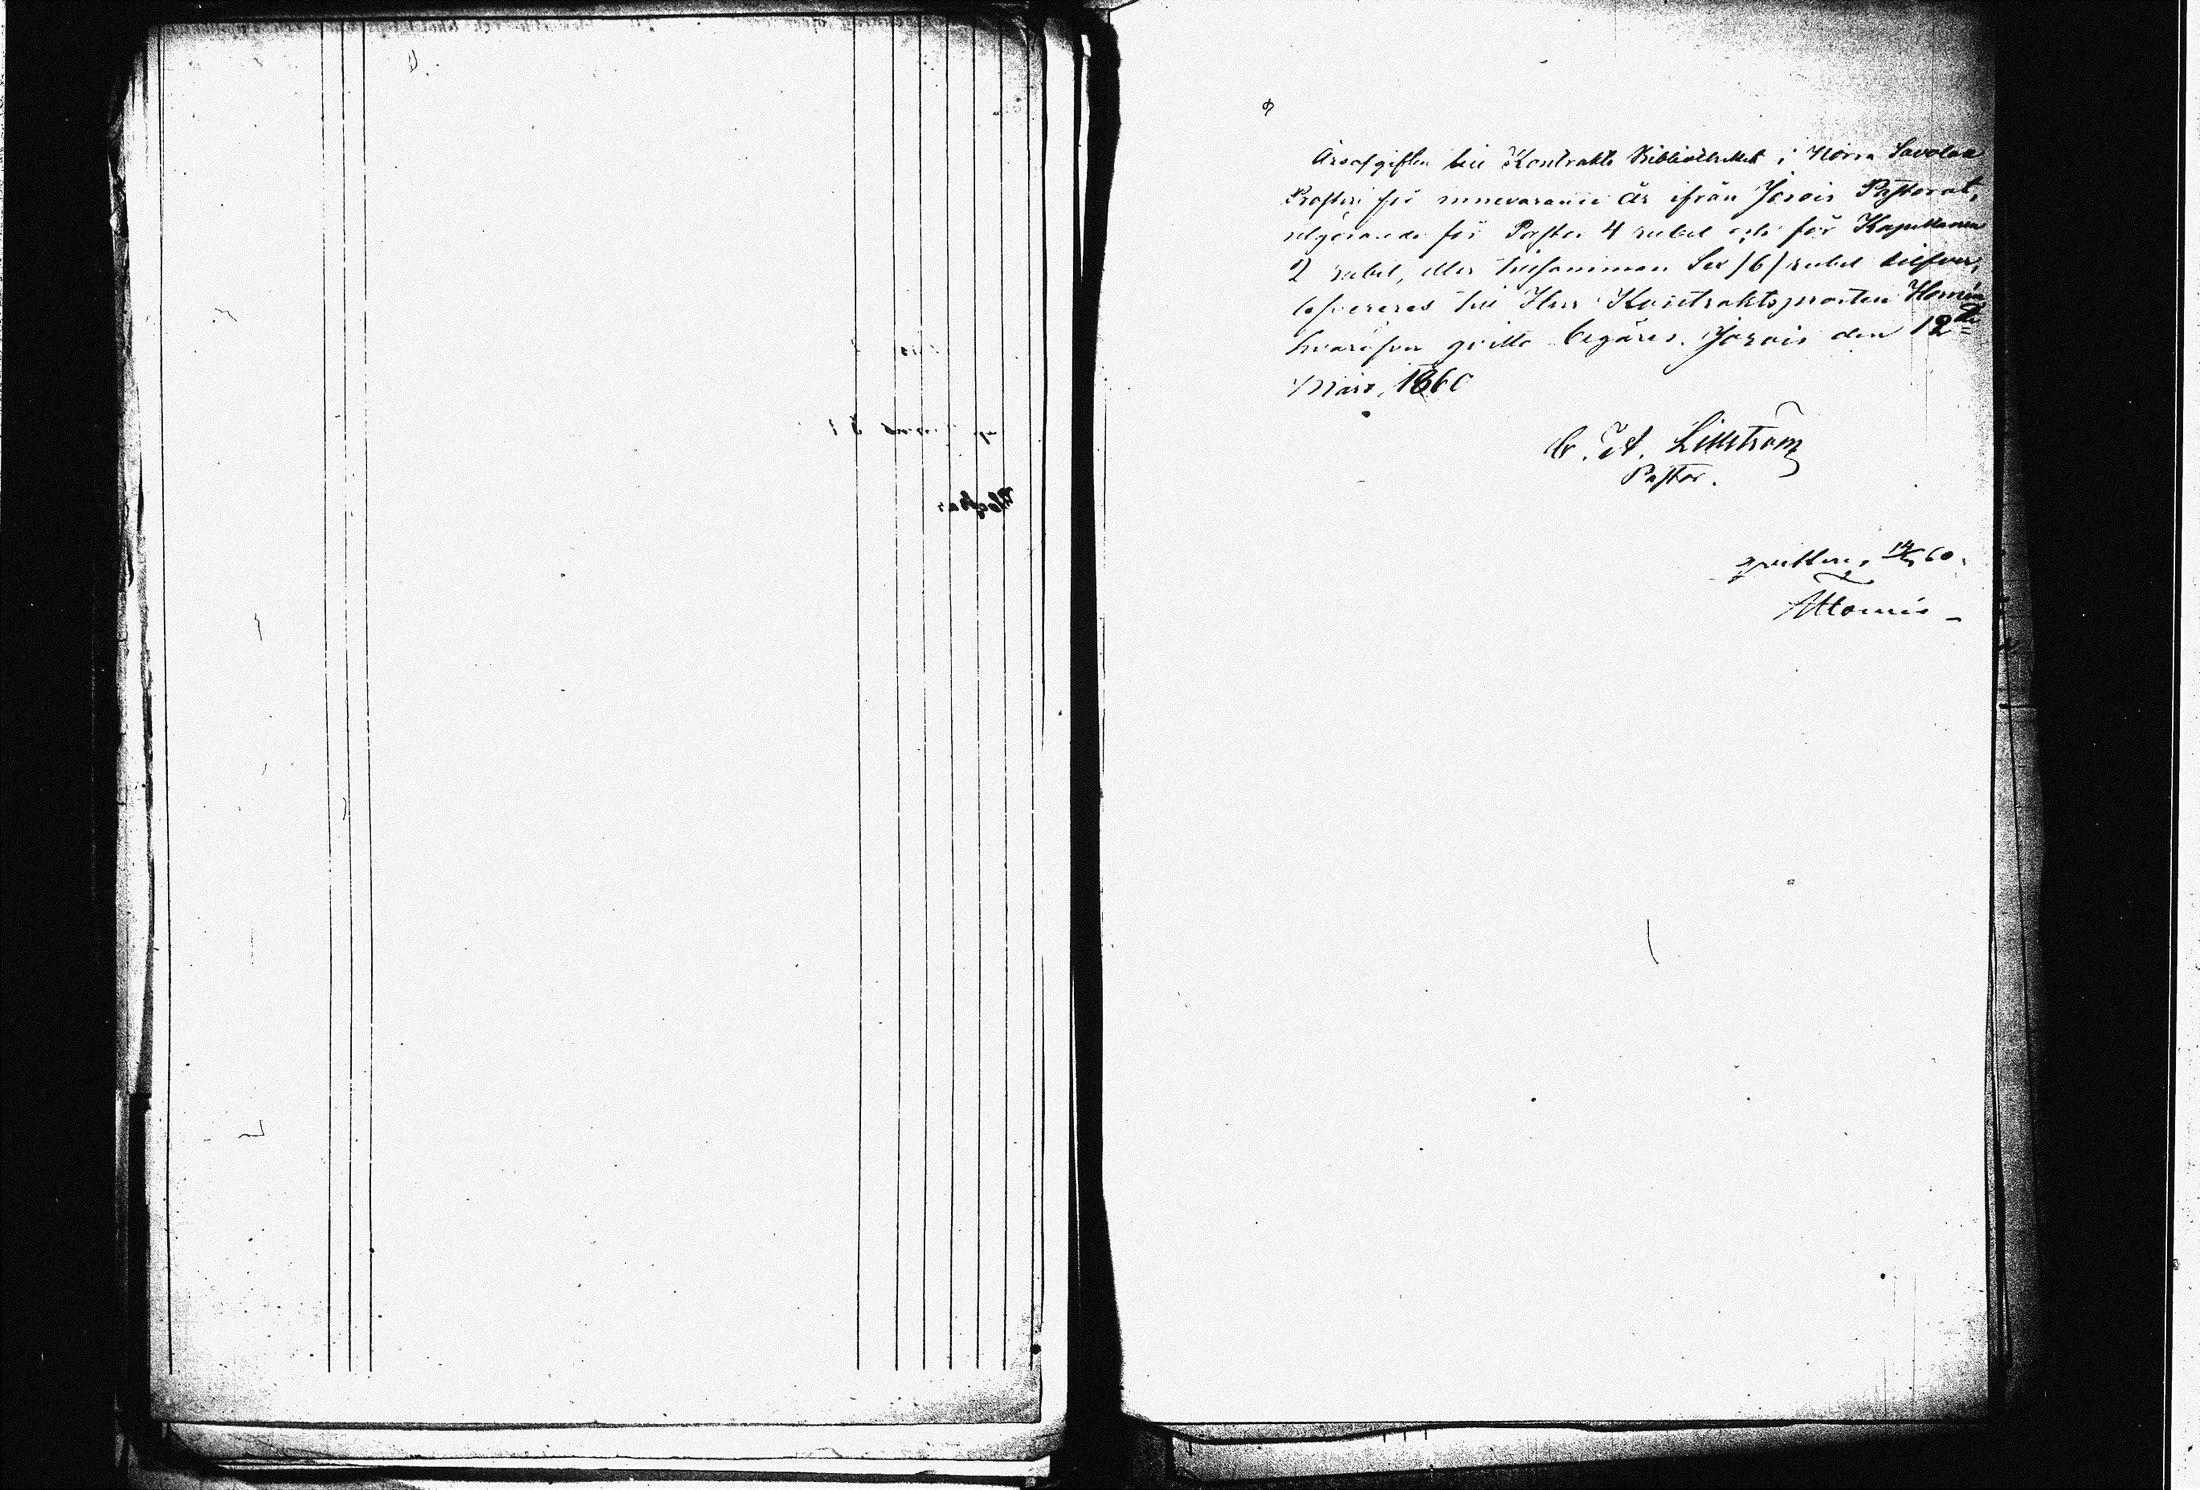 Årsafgiften till Kontrakts Bibliotheket i Norra Savolax
Prosteri för innevarande år ifrån Jorois Pastorat,
utgörande för Pastor 4 rubel och för Kapellanen
2 rubel, eller tillsamman Sex /6/ rubel silfver,
lefvereras till Herr Kontraktsprosten
hvaröfver qvitto begäres. Jorois den 12te
Mars, 1860
C. A. Lillström
Pastor.
qvitteras 60.